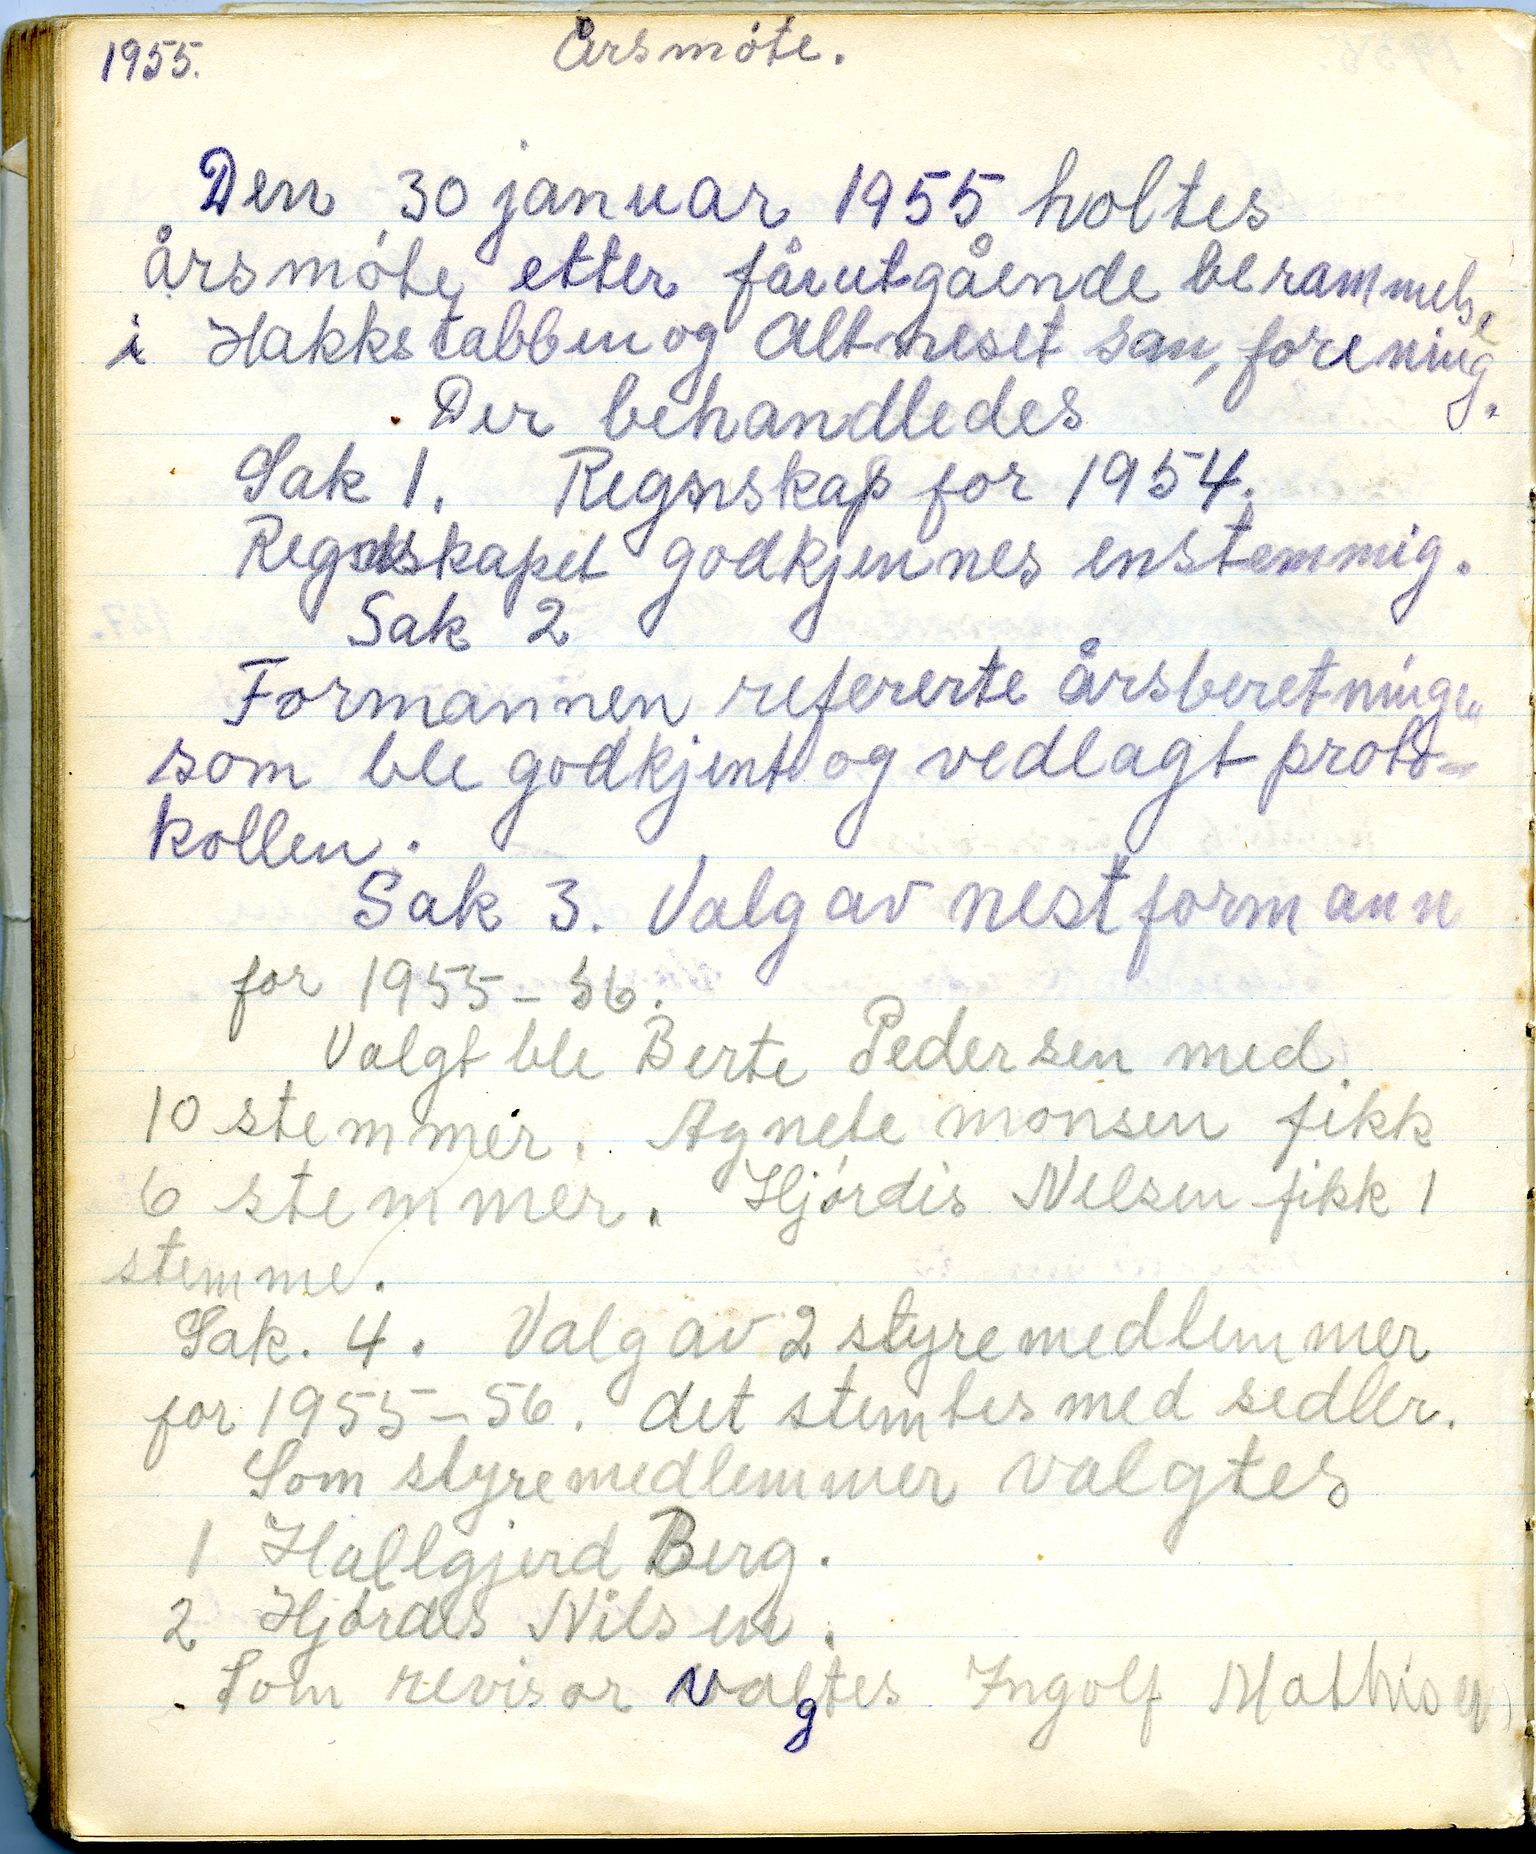 1955. Årsmóte.
Den 30 januar 1955 holtes
årsmóte etter fårutgående berammelse
i Hakkstabben og Altneset san, forening.
Der behandledes
Sak 1. Regnskap for 1954.
Regnskapet godkjennes enstemmig.
Sak 2
Formannen refererte årsberetningen
som ble godkjent og vedlagt proto-
kollen.
Sak 3. Valg av nestformann
for 1955-56.
Valgt ble Berte Pedersen med
10 stemmer. Agnete monsen fikk
6 stemmer. Hjórdis Nelsen fikk 1
stemme.
Sak. 4. Valg av 2 styremedlemmer
for 1955-56. det stemtes med sedler.
Som styremedlemmer valgtes
1 Hallgjerd Berg.
2 Hjórdis Nilsen.
Som revisor valgtes Ingolf Mathisen